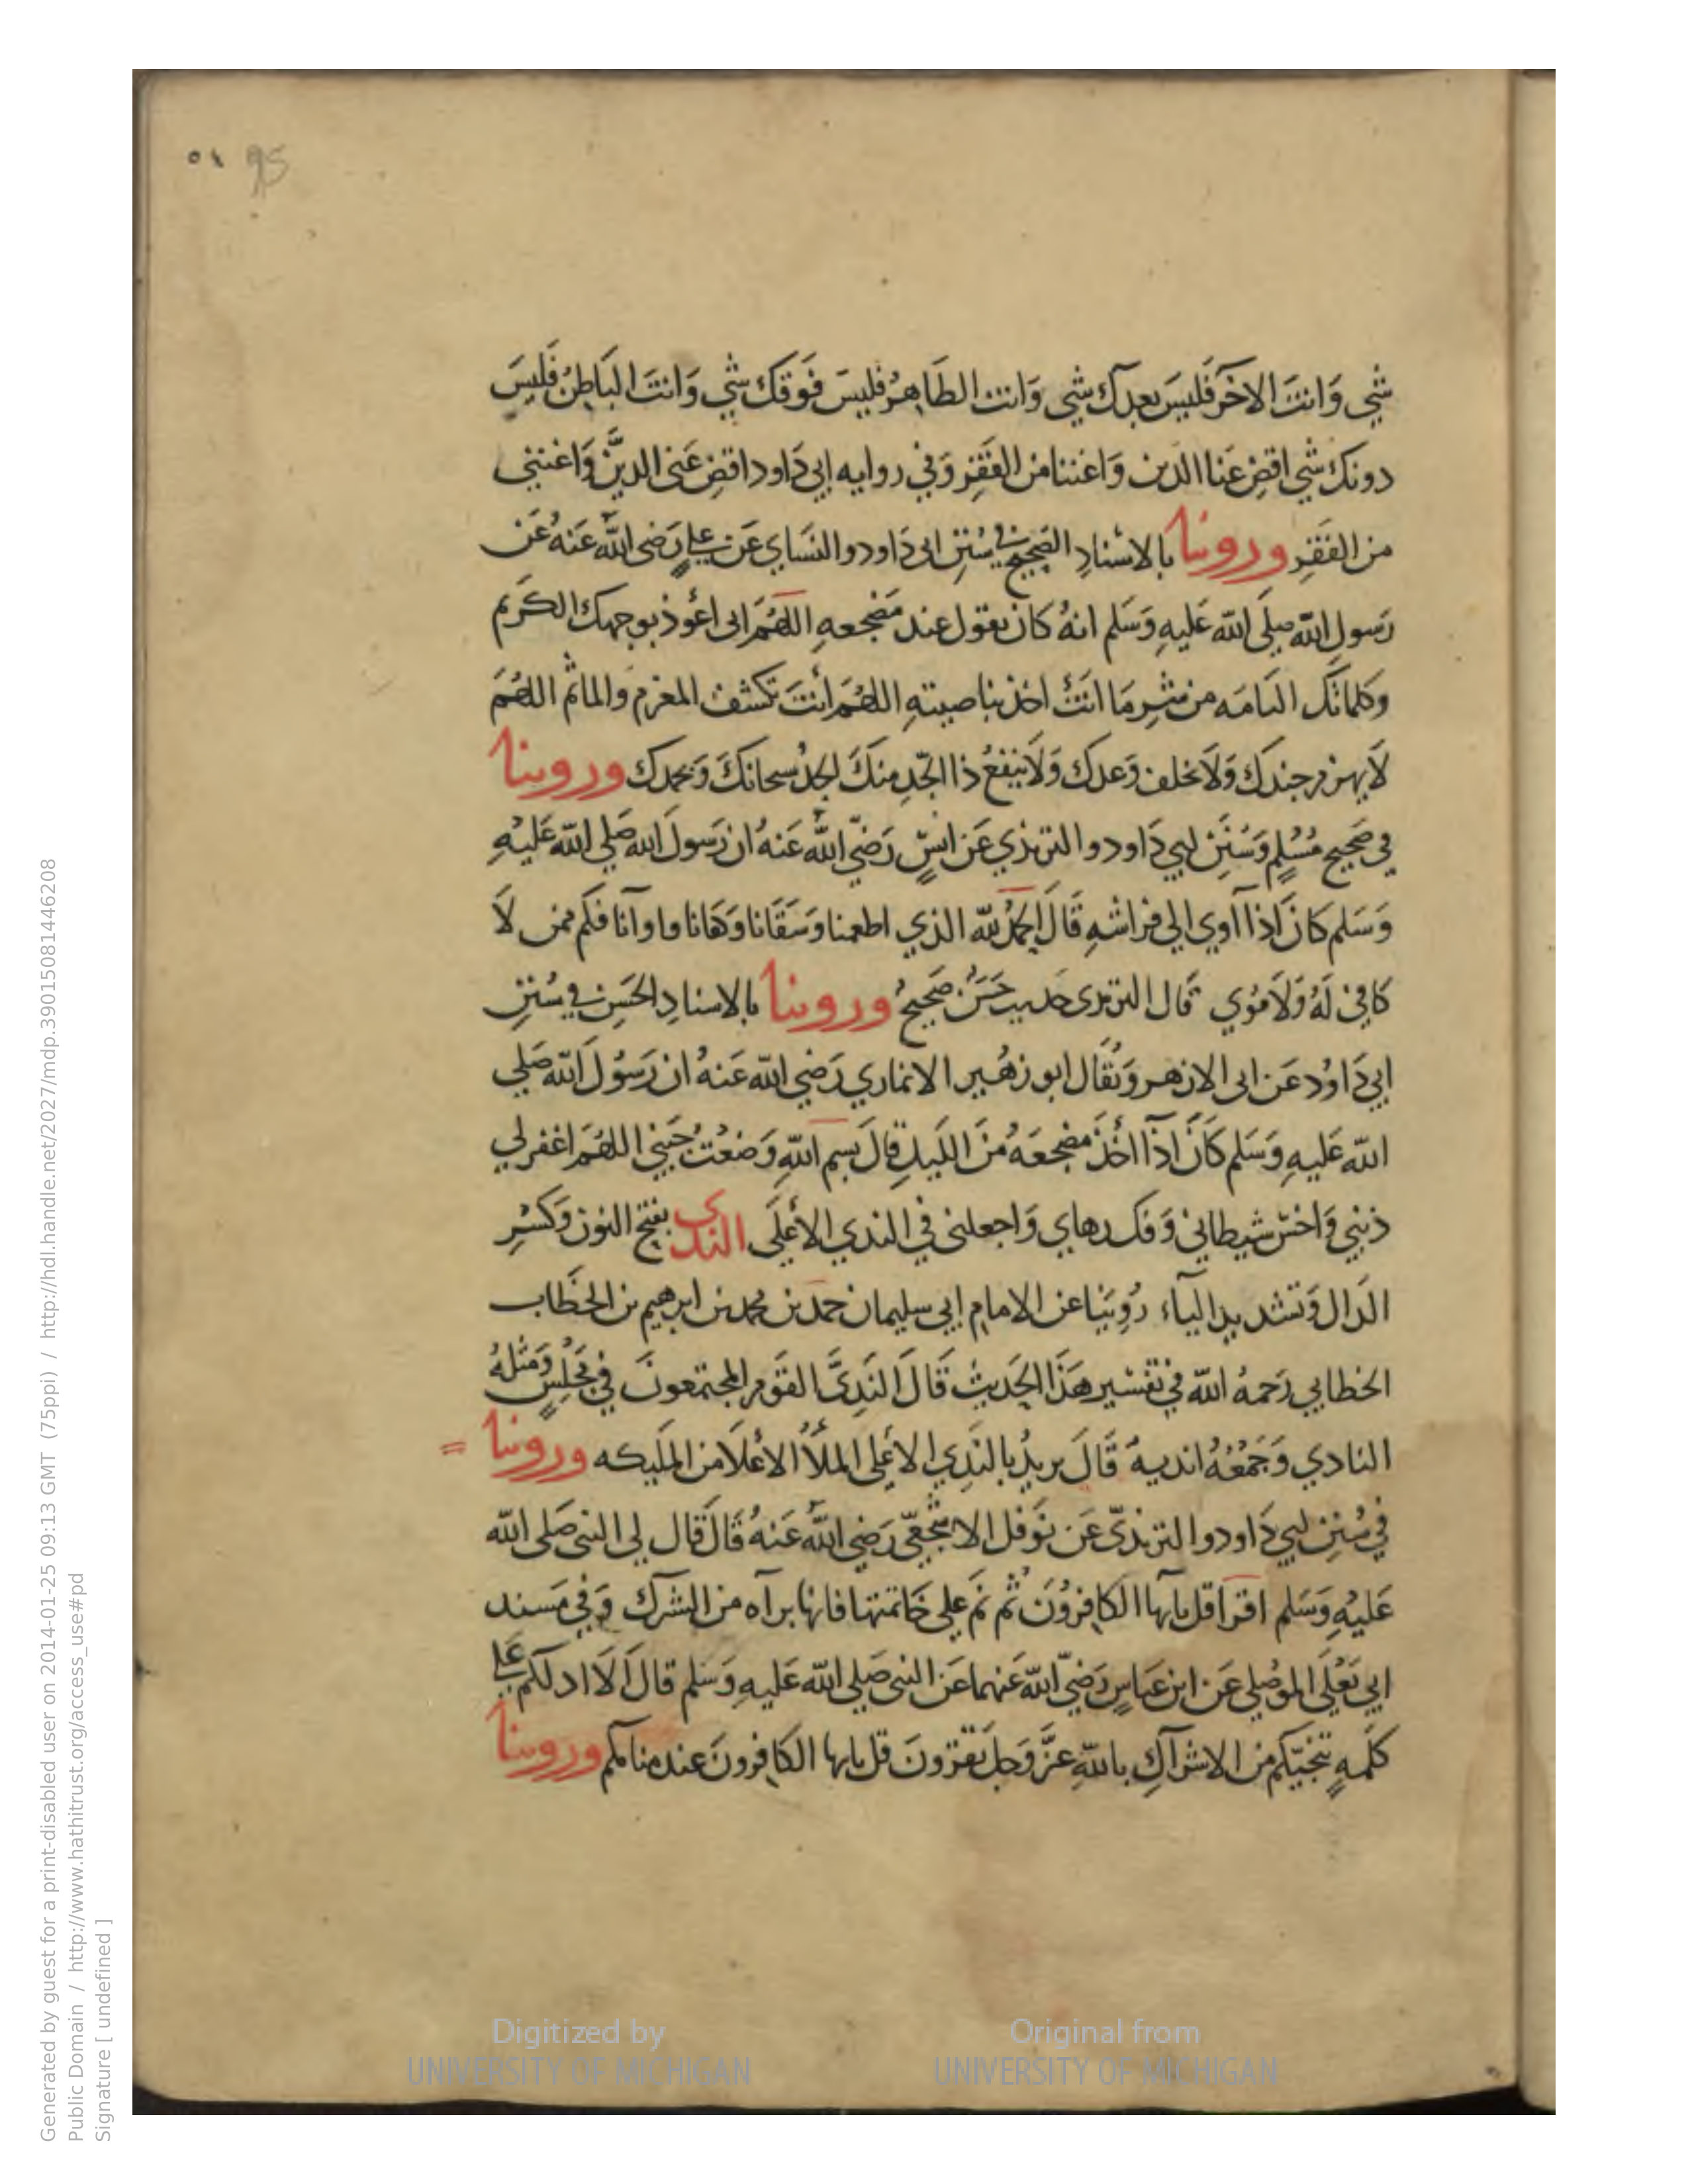 95 ٥١
شي وَانتَ الاخَر فَليسَ بعدك شي وَانت الظَاهرُ فليسَ فَوَقكَ شي وَانتَ البَاطِنُ فَليسَ
دونكَ شي اقضِ عَنا الدين وَاغننا من الفَقِر وَفي روايه ابي دَاود اقضِ عَنى الدينَّ وَاغننى
من الفَقِر وروينا بالاسْنادِ الصَحِيح في سُنَنِ ابى دَاود والنسَاي عَن علي رَضى اللّٰه عَنهُ عَن
رَسولِ اللّٰه صلَى اللّٰه عَليهِ وَسَلم انهُ كانَ يقول عند مَضجعهِ اللهُمَ انى اعُوذ بوجهك الكَريم
وَكلماتك التامَه من شرِ مَا انتَ اخذ بناصيتهِ اللهُمَ أنتَ تكشف المغرم والماثم اللهُمَ
لَا يهزم جندك وَلَا يخلف وَعدك وَلَا ينفعُ ذا الجَدِ منكَ الجدُ سبحانكَ وَبحمدك وروينا
في صَحيح مُسْلمٍ وَسُنَن ابي دَاود والترمذي عَن انسٍ رَضيَ اللّٰه عَنهُ ان رَسولَ الله صَلي اللّٰه عَليهِ
وَسَلم كانَ اذا آوي الي فراشهِ قَالَ الحمدُ للّٰه الذي اطعمنا وَسَقَانا وَكفَانا واوآنا فكم ممن لَا
كافيَ لَهُ وَلَا مؤوي قَال الترمذى حَديث حَسَنُ صَحيحُ وروينا بالاسنادِ الحَسِن في سُننِ
ابي دَاوُد عَن ابى الازهر وَيُقَال ابو زهُير الانماري رَضي اللّٰه عَنهُ ان رَسُولَ اللّٰه صَلي
اللّٰه عَليهِ وَسَلم كَانَ اذآ اخَذَ مضجعَهُ مَن اللَيلِ قالَ بسمِ اللّٰهِ وَضعْتُ جَنبي اللهُمَ اغفر لي
ذنبي وَاخسَ شيطاني وَفك رهاي وَاجعلنى في الندي الاعْلَى الندى بفتح النون وَكسْرِ
الدَال وَتشديد اليآء رُوِيَنا عن الامامِ ابي سليمان حمَد بن محمد بن ابرهيم بن الخَطاب
الخطابي رَحمهُ اللّٰه في تفسْير هَذَا الحَديث قَالَ النَدِىَّ القَوم المجتمعونَ في مَجْلسٍ وَمثلهُ
النادي وَجَمْعُهُ انديهٌ قَالَ يريدُ بالنَدِي الاعْلى الملأ الاعْلَا من المَليكه وروينا =
في سُنن ابي دَاود والترمذيّ عَن نوَفل الاشجعيّ رَضي اللّٰه عَنهُ قالَ قال لى النبى صَلى اللّٰه
عَليهِ وَسَلم اقرَا قل يايها الكافرُونَ ثُم نَم علي خَاتمتها فانها برآه من الشرك وَفي مسند
ابي يَعْلَى الموْصلي عَن ابن عَباسٍ رَضيَ اللّٰه عَنهما عَن النبي صَلي اللّٰه عَليهِ وَسَلم قالَ اَلَا ادلكم علي
كلَمهٍ تنجيّكم من الاشرَاكِ باللّٰهِ عزَّ وَجلَ تقرؤونَ قل يايها الكافرونَ عند منامكم وروينا
Digitized by
UNIVERSITY OF MICHIGAN
Original from
UNIVERSITY OF MICHIGAN
Generated by guest for a print-disabled user on 2014-01-25 09:13 GMT (75ppi) / http://hdl.handle.net/2027/mdp.39015081446208
Public Domain / http://www.hathitrust.org/access_use#pd
Signature [ undefined ]